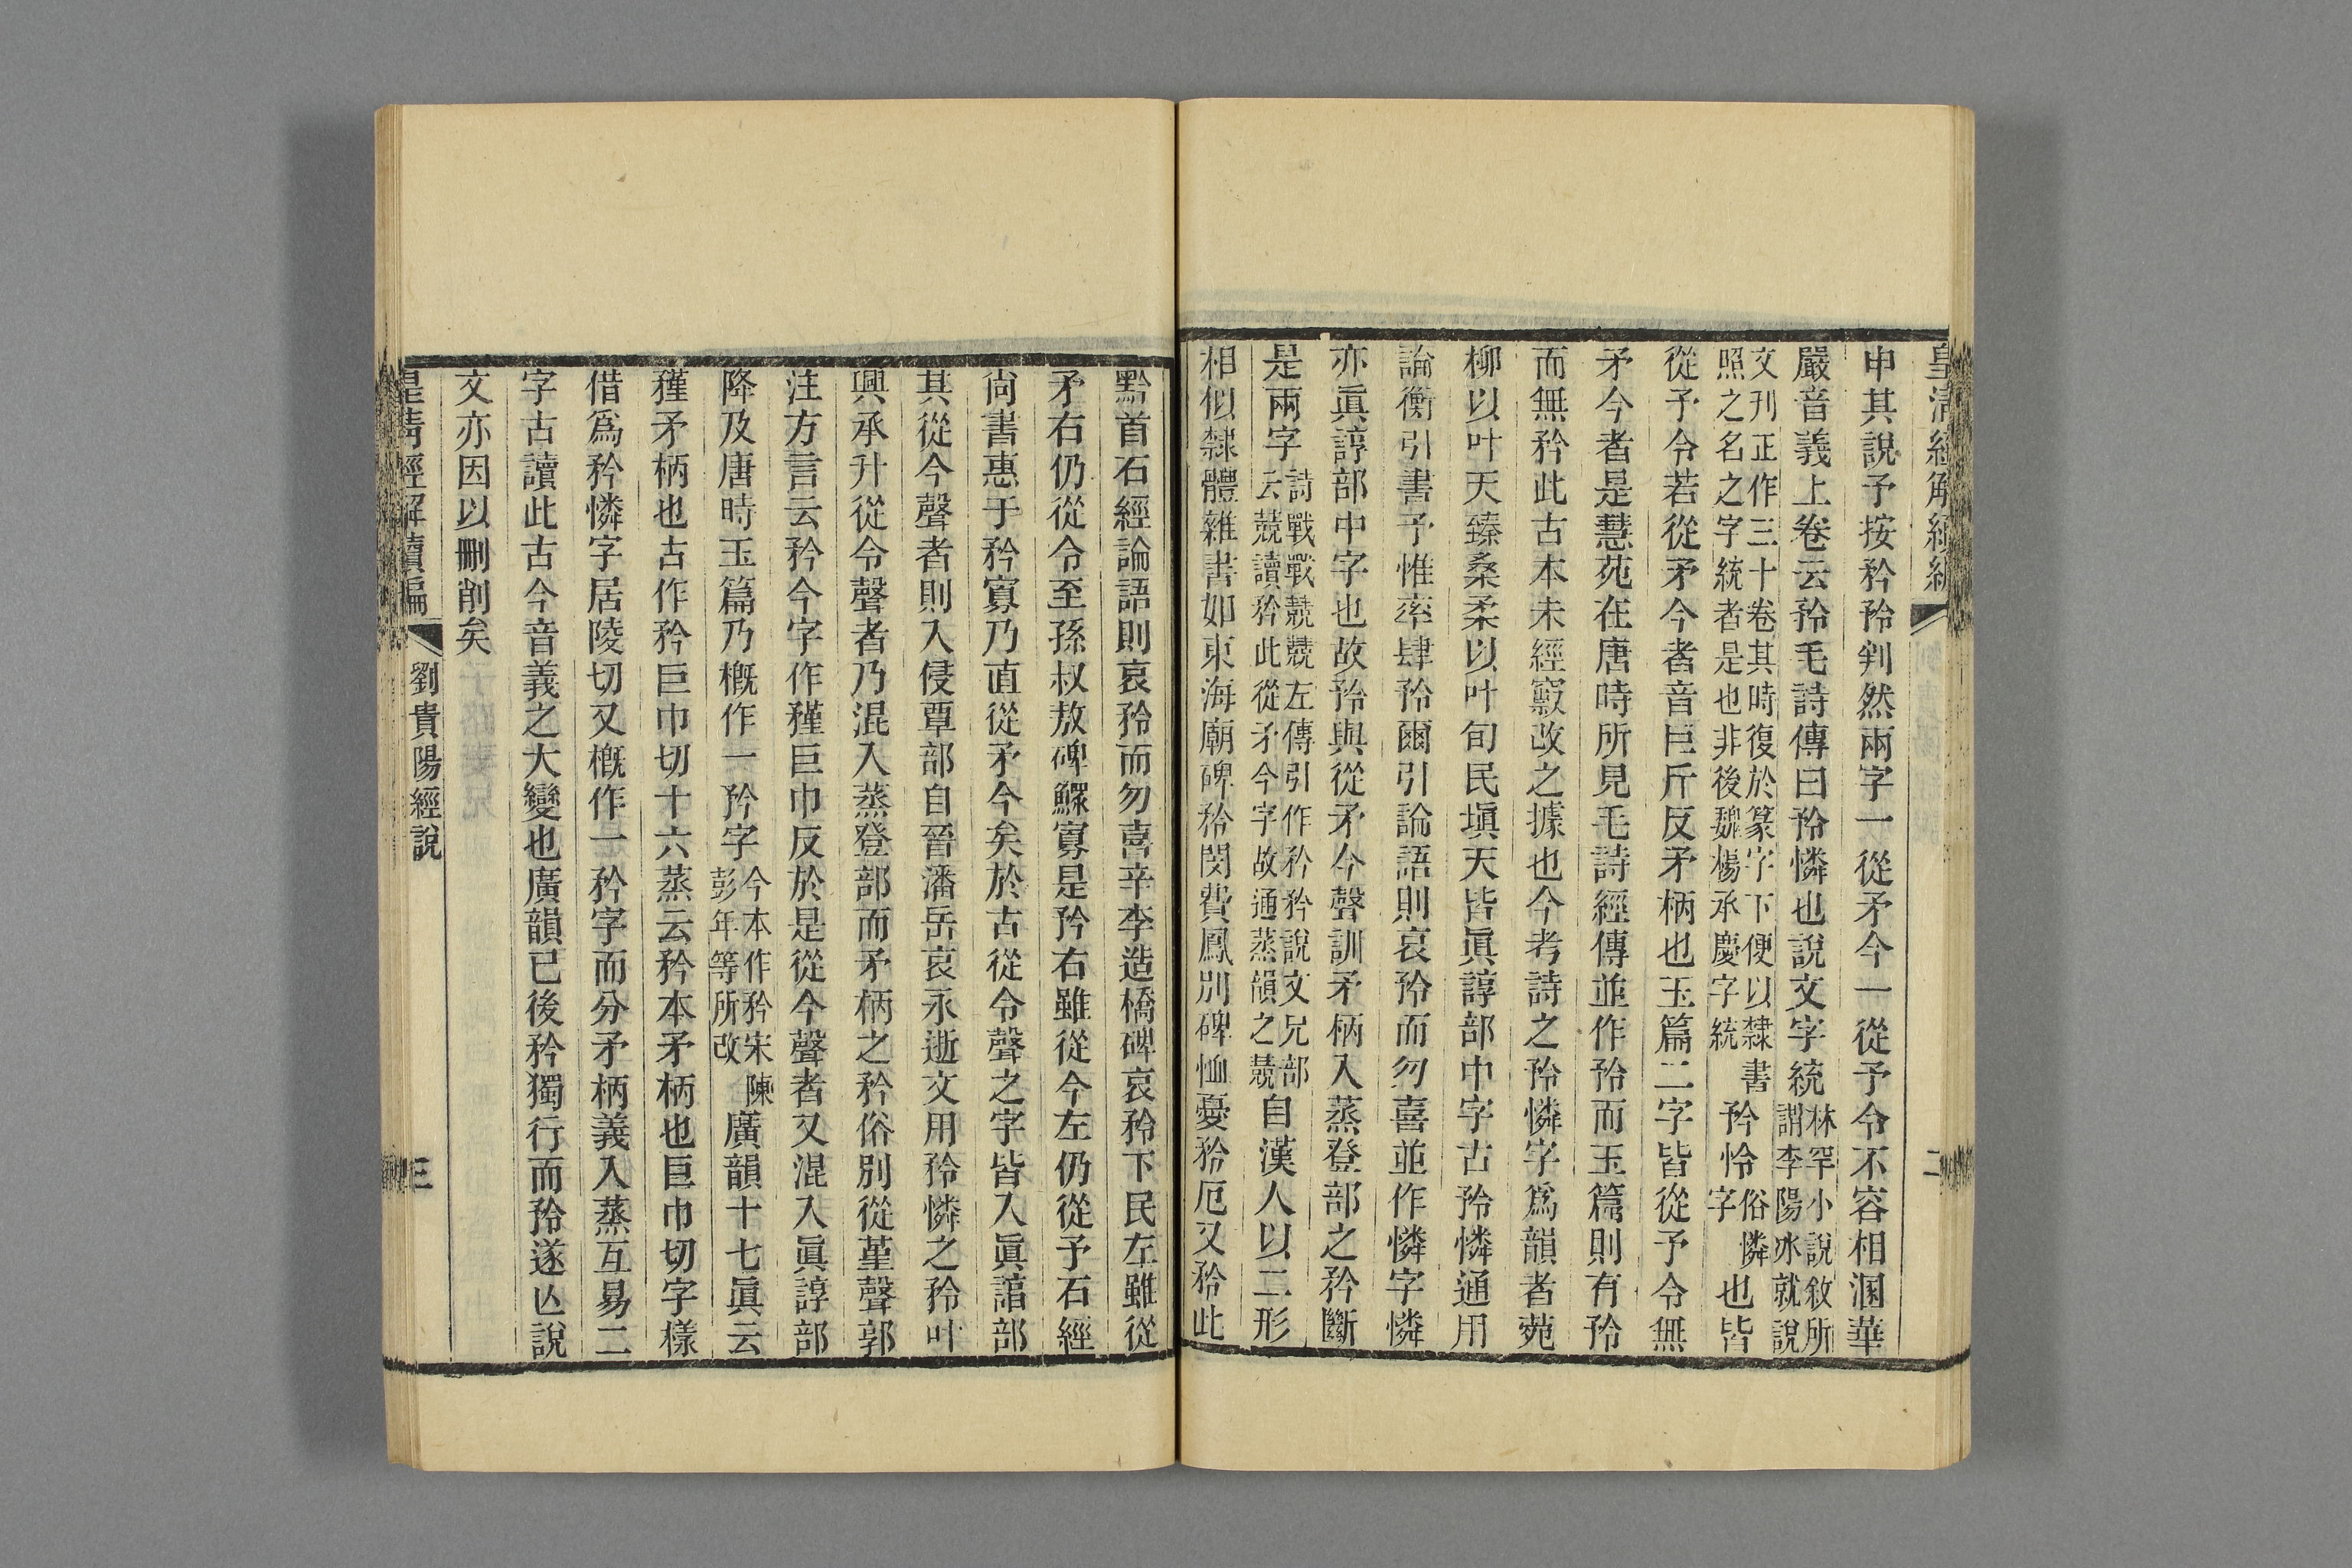 皇清經解續編 二
申其說予按矜矝判然兩字一從矛今一從予令不容相溷華
嚴音義上卷云矝毛詩傳曰矝憐也說文字統林罕小說敘所謂李陽冰就說
文刊正作三十卷其時復於篆字下便以隸書照之名之字統者是也非後魏楊承慶字統矜怜字俗憐也皆
從予令若從矛今者音巨斤反矛柄也玉篇二字皆從予令無
矛今者是慧苑在唐時所見毛詩經傳並作矝而玉篇則有矝
而無矜此古本未經竄改之據也今考詩之矝憐字爲韻者菀
柳以叶天臻桑柔以叶旬民填天皆眞諄部中字古矝憐通用
論衡引書予惟率肆矝爾引論語則哀矝而勿喜並作憐字憐
亦眞諄部中字也故矝與從矛今聲訓矛柄入蒸登部之矜斷
是兩字詩戰戰兢兢左傳引作矜矜說文兄部云兢讀矜此從矛今字故通蒸韻之兢自漢人以二形
相似隸體雜書如東海廟碑矝閔費鳳別碑恤憂矝厄又矝此
黔首石經論語則哀矝而勿喜辛李造橋碑哀矝下民左雖從
矛右仍從令至孫叔敖碑鰥寡是矜右雖從今左仍從予石經
尙書惠于矜寡乃直從矛今矣於古從令聲之字皆入眞諄部
其從今聲者則入侵覃部自晉潘岳哀永逝文用矝憐之矝叶
興承升從令聲者乃混入蒸登部而矛柄之矜俗別從堇聲郭
注方言云矜今字作䂓巨巾反於是從今聲者又混入眞諄部
降及唐時玉篇乃概作一矜字今本作矜宋陳彭年等所改廣韻十七眞云
䂓矛柄也古作矜巨巾切十六蒸云矜本矛柄也巨巾切字樣
借爲矜憐字居陵切又概作一矜字而分矛柄義入蒸互易二
字古讀此古今音義之大變也廣韻已後矜獨行而矝遂亾說
文亦因以刪削矣
皇清經解續編 劉貴陽經說 三